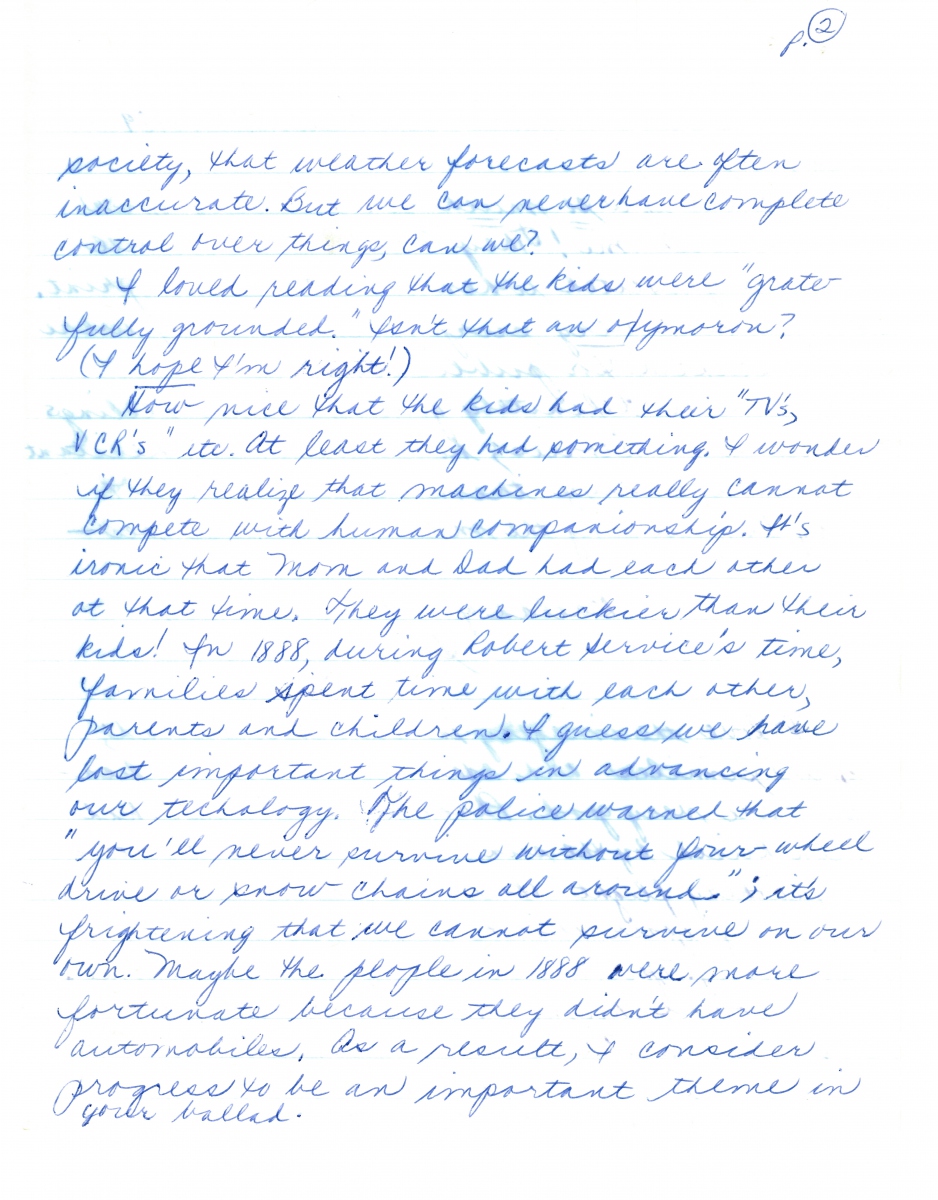 p. 2
society, that weather forecasts are often
inaccurate. But we can never have complete
control over things, can we?
I loved reading that the kids were "grate-
fully grounded." Isn't that an oxymoron?
(I hope I'm right!)
How nice that the kids had their "TV's,
VCR's" etc. At least they had something. I wonder
if they realize that machines really cannot
compete with human companionship. It's
ironic that Mom and Dad had each other
at that time. They were luckier than their
kids! In 1888, during Robert Service's time,
families spent time with each other,
parents and children. I guess we have
lost important things in advancing
our techology. The police warned that
"you'll never survive without four-wheel
drive or snow chains all around."; it's
frightening that we cannot survive on our
own. Maybe the people in 1888 were more
fortunate because they didn't have
automobiles. As a result, I consider
progress to be an important theme in
your ballad.